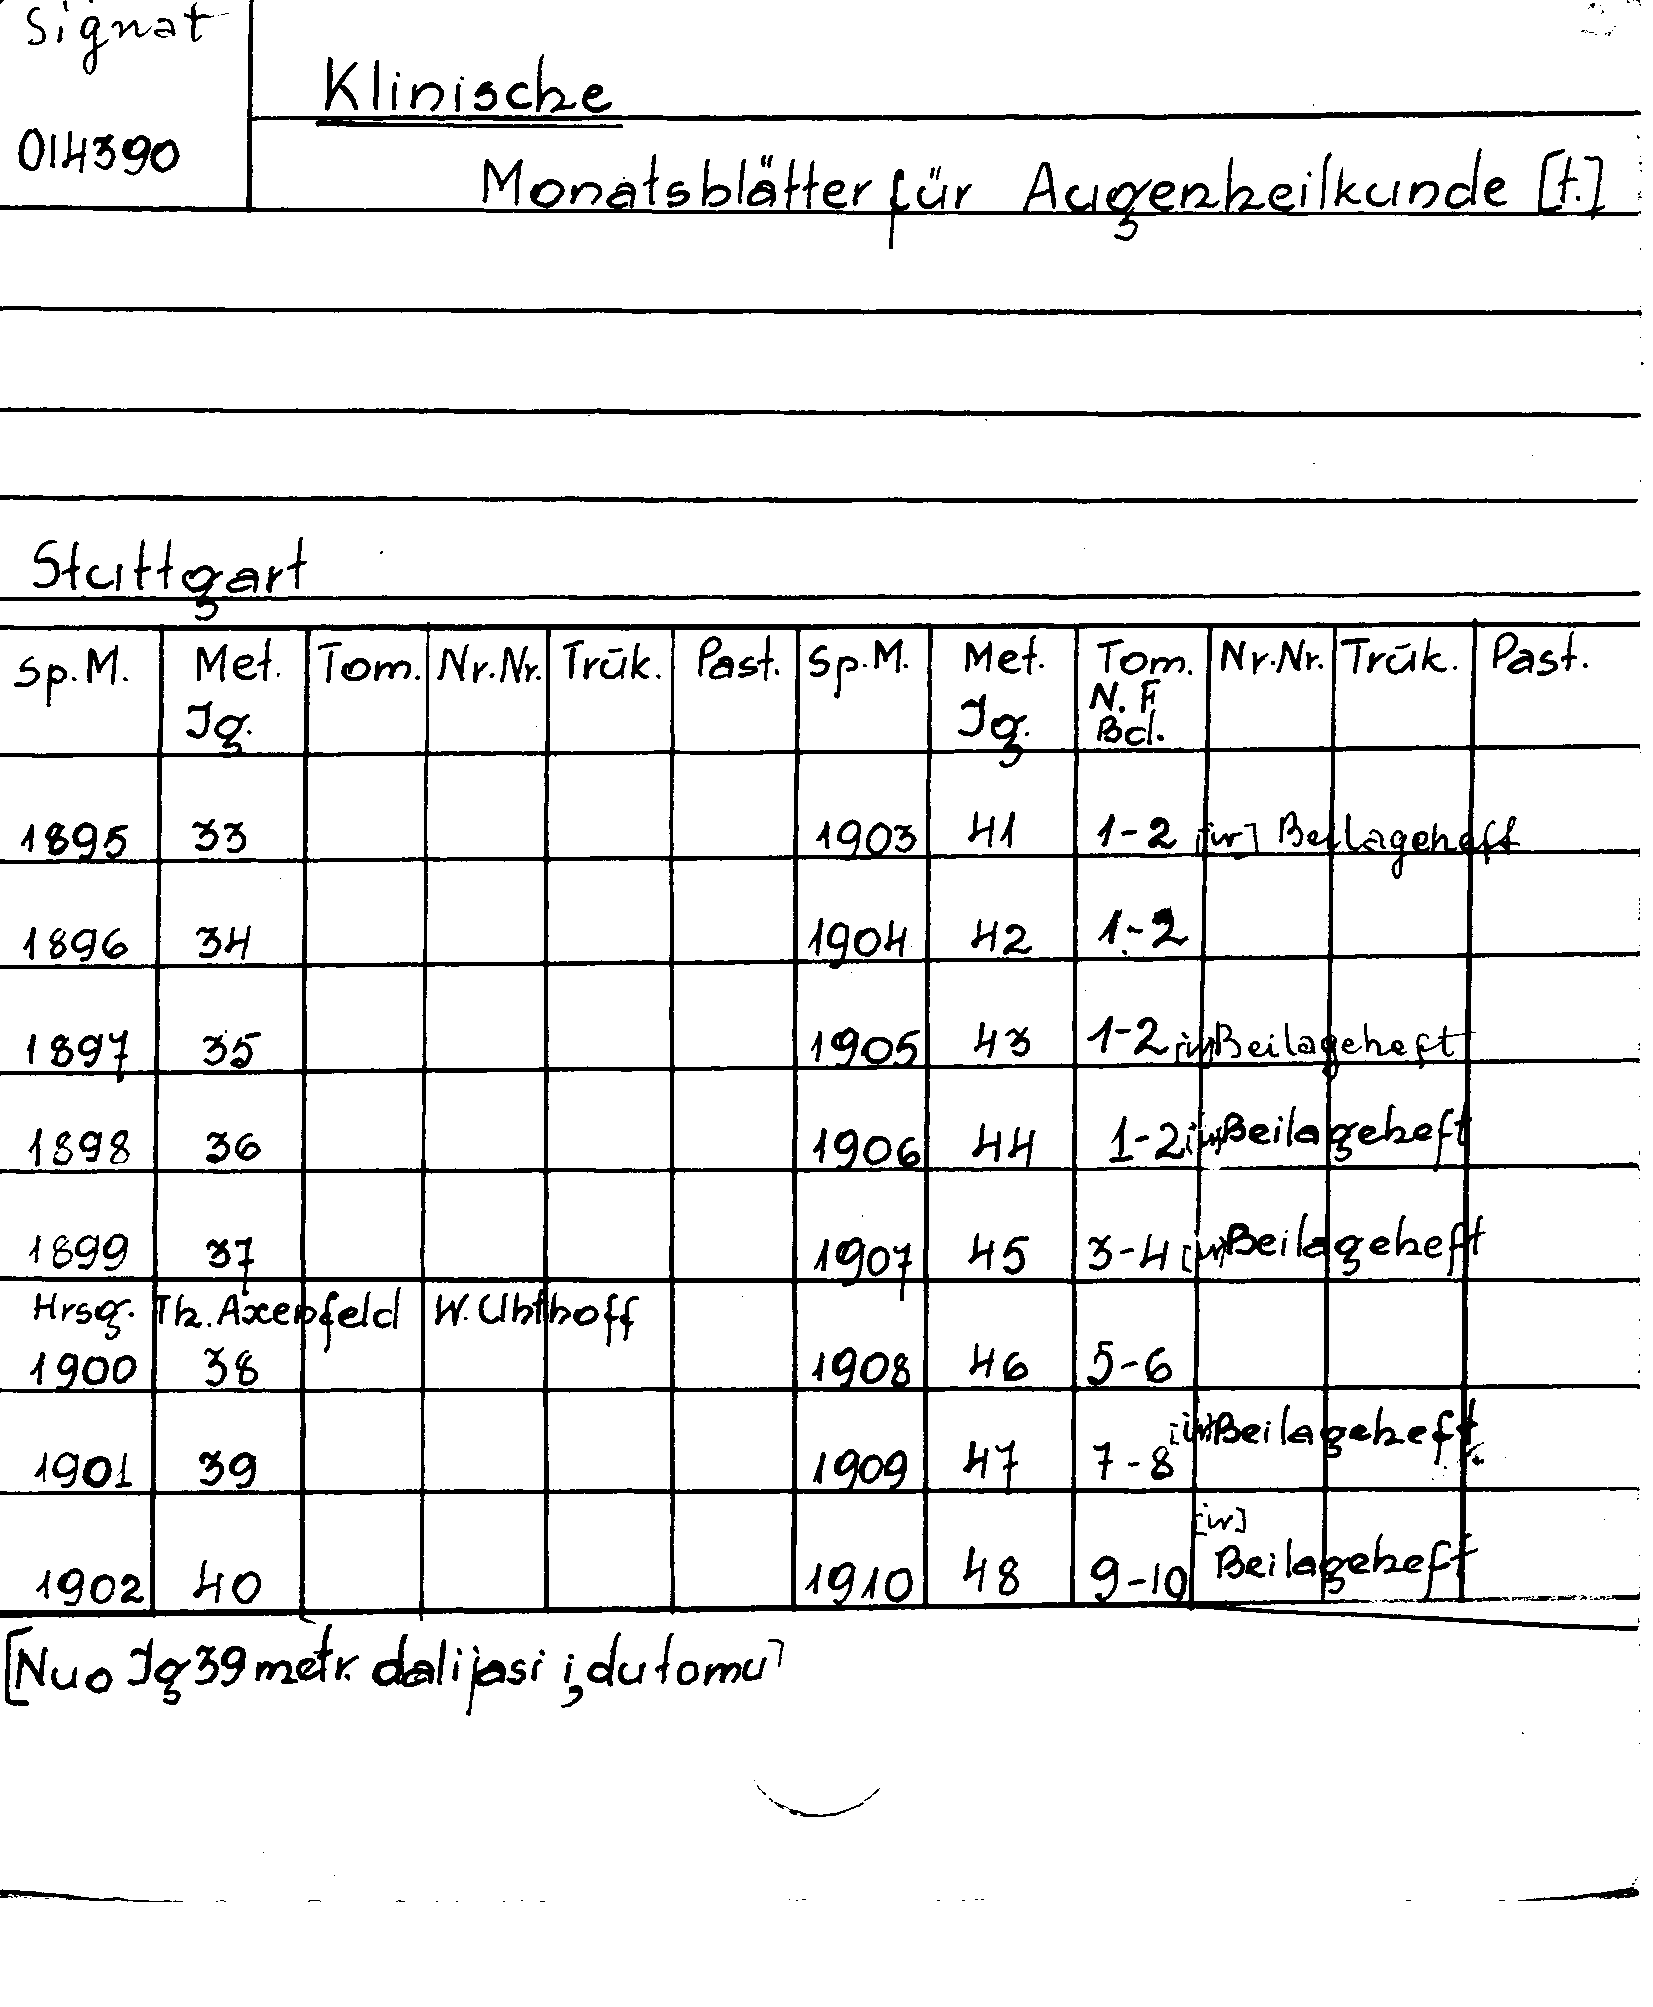 Signat
Klinische
014390
Monatsblätter für Augenheilkunde [t.]
Stuttgart
Sp.M. Met. Tom. Nr.Nr. Trūk. Past. Sp.M. Met. Tom. Nr.Nr. Trūk. Past.
Jg. Jg. N.F. Bd.
1895 33 1903 41 1-2 [ir] Beilageheft
1896 34 1904 42 1-2
1897 35 1905 43 1-2 [ir] Beilageheft
1898 36 1906 44 1-2 [ir] Beilageheft
1899 37 1907 45 3-4 [ir] Beilageheft
Hrsg. Th. Axenfeld W. Uhthoff
1900 38 1908 46 5-6
1901 39 1909 47 7-8 [ir] Beilageheft
1902 40 1910 48 9-10 [ir] Beilageheft
[Nuo Jg 39 metr. dalijasi į du tomu]